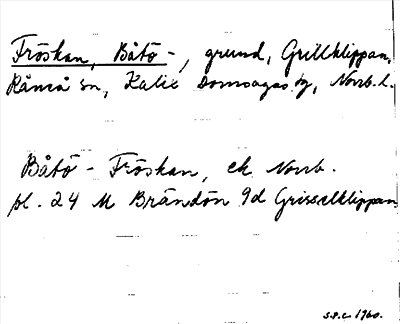 Fröskan, Båtö -, grund, Grillklippan,
Råneå sn, Kalix Domsagas tg, Norrb. l.
Båtö - Fröskan, ek Norrb.
pl. 24 M Brändön 9d Grisselklippan
S.P.C. 1960.